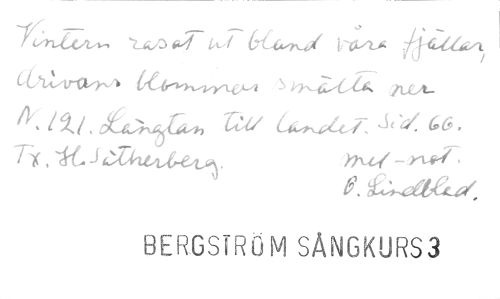 Vintern rasat ut bland våra fjällar,
drivans blommor smälta ner
N. 121. Längtan till landet. Sid. 66.
Tx. H. Sätherberg. mel-not.
O. Lindblad.
BERGSTRÖM SÅNGKURS 3